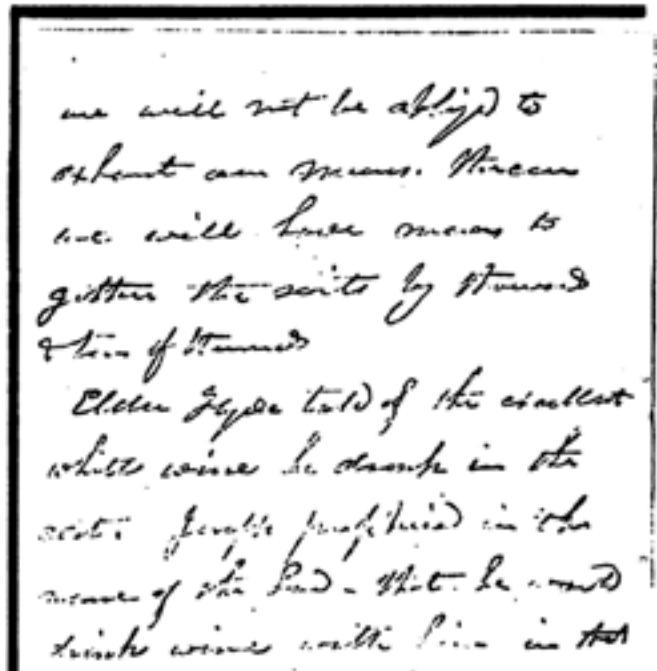 we will not be obliged to
exhaust our means. Thereon
we will have means to
gather the saints by thousands
& tens of thousands
Elder Hyde told of the excellent
white wine he drank in the
east. Joseph prophesied in the
name of the Lord - that he would
drink wine with him in that